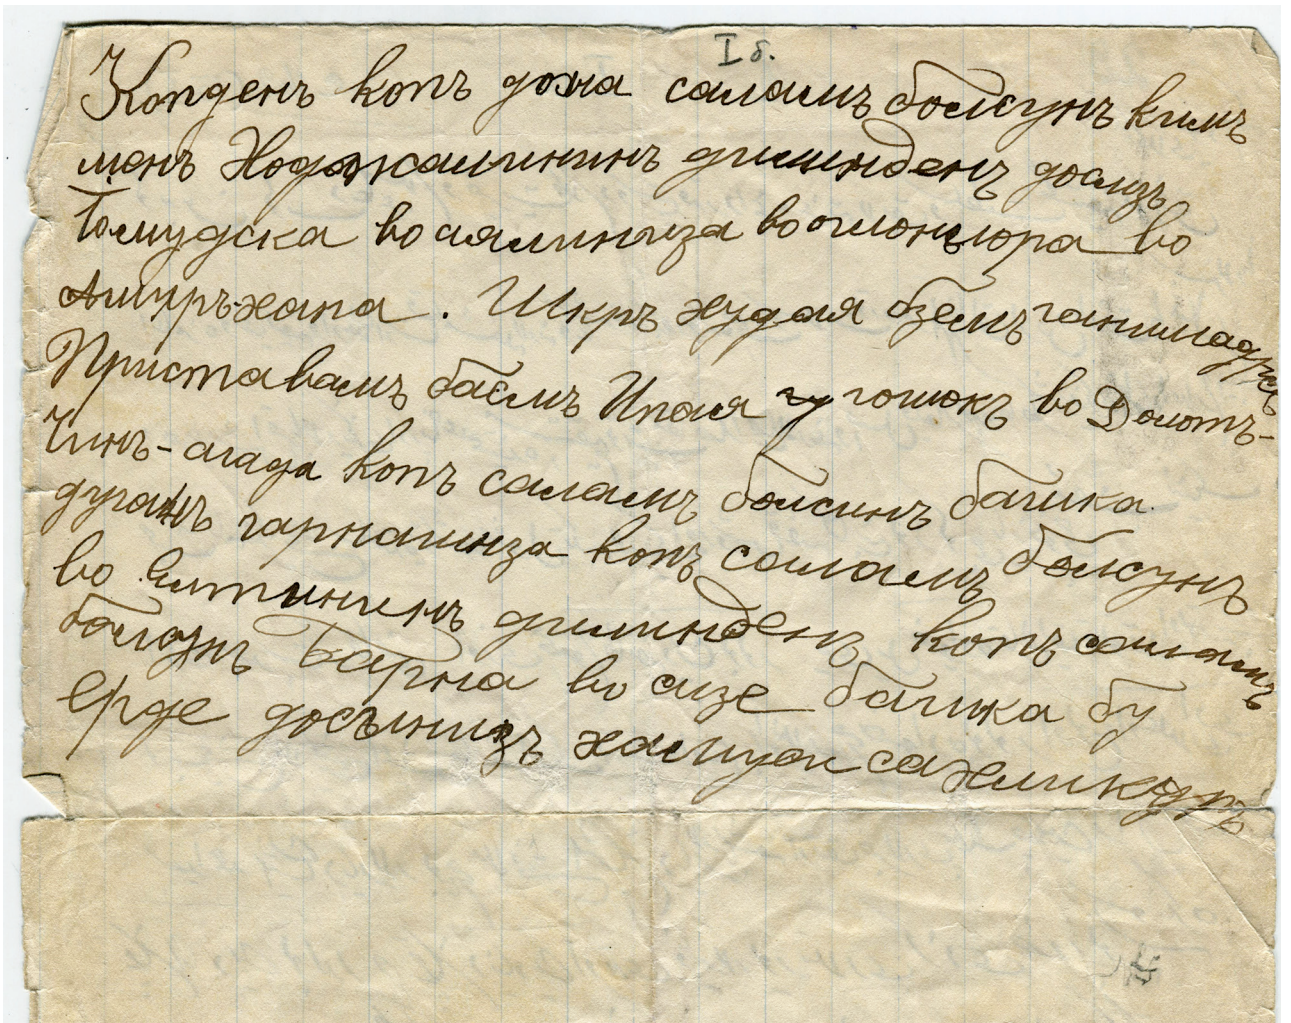 I б.
Копденъ копъ дога саламъ болсунъ кимъ
менъ Ходжамининъ дилинденъ достъ
Томудска во аялиныза во огломлора во
Амиръ-хана. Шкръ худая бземъ
Приставамъ басмъ Ипая гошокъ во Долотъ-
Чинъ-агада копъ саламъ болсинъ башка
дуганъ гарнашнза копъ саламъ болсунъ
во Алтининъ дилинденъ копъ саламъ
болсунъ Барна во сизе башка бу
ерде досъниизъ хамуси сахликдръ